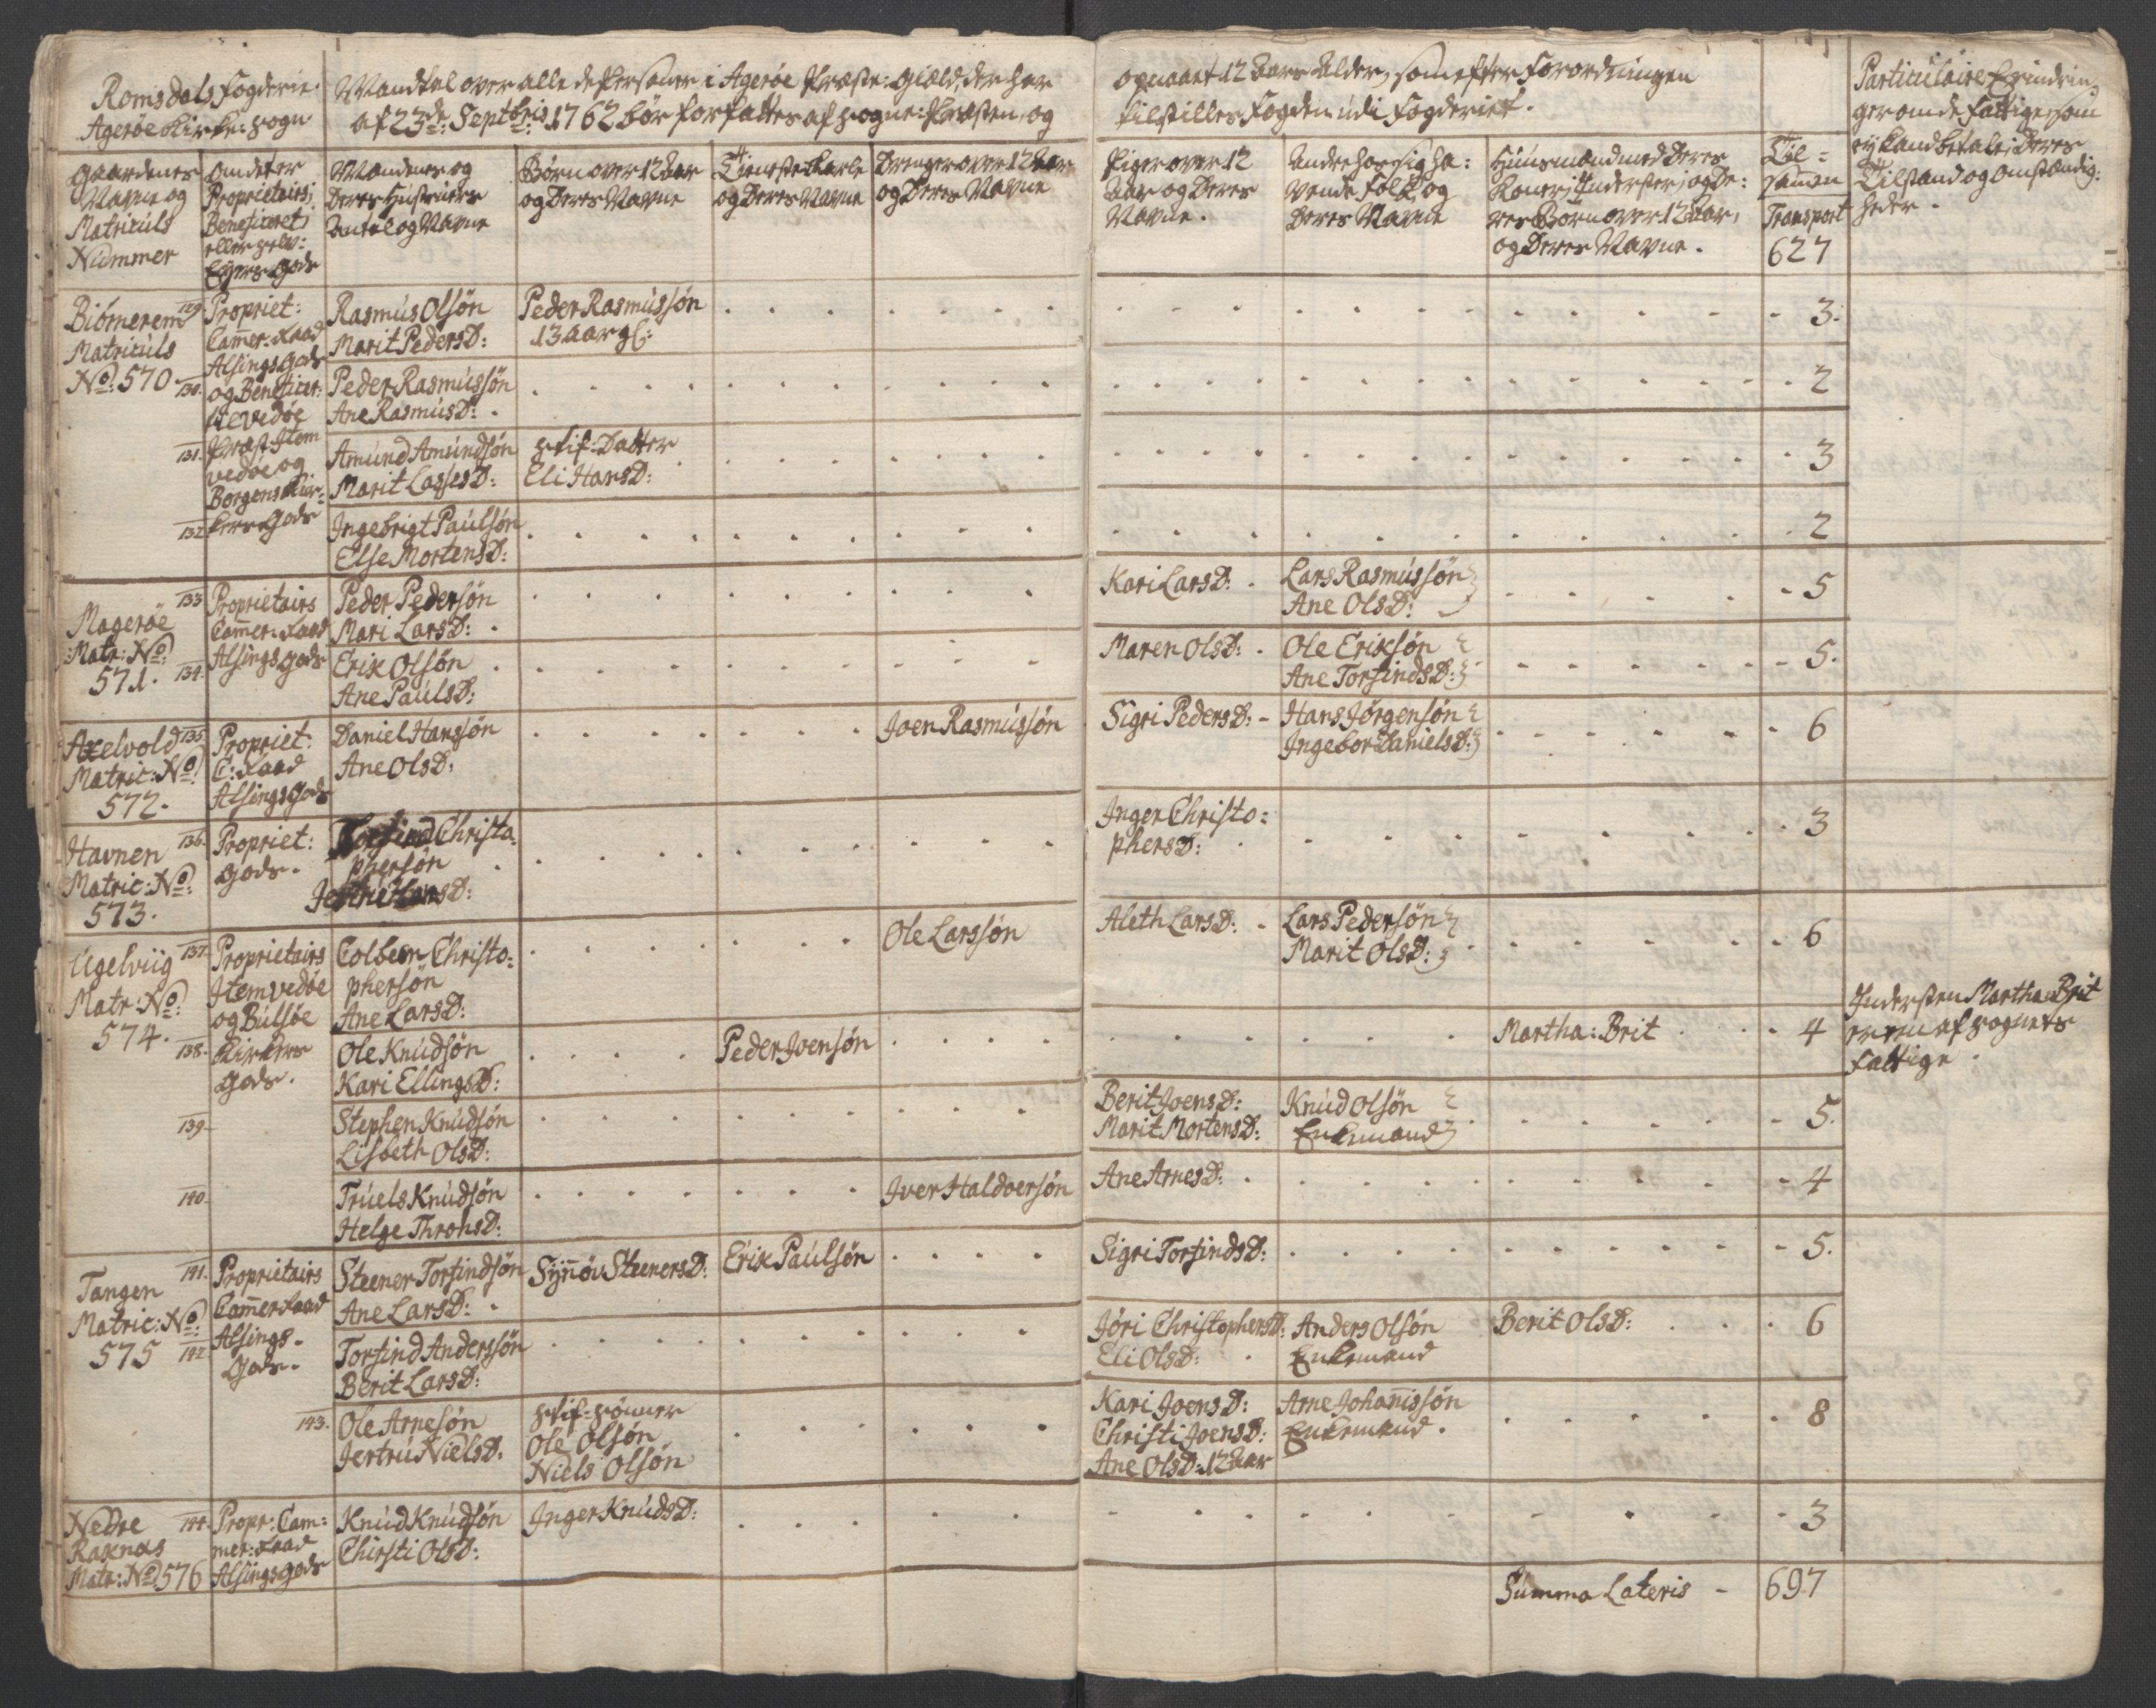 Romsdals Fogderie.
Agerøe Kirke-Sogn
Mandtal over alle de Personer i Agerøe Præste-Giæld, der har
af 23de Septbris 1762 bør forfattes af Sogne-Præsten, og
opnaaet 12 Aars Alder, som efter Forordningen
tilstilles Fogden udi Fogderiet.
Particulaire Erindrin-
ger om de Fattige, som
ej kand betale i Deres
Tilstand og omstændig-
heder.
Gaardenes
Navne og
Matriculs
Nummer
Om de er
Proprietairs,
Beneficeret,
eller Selv-
Ejers Gods
Mandenes og
Deres Hustruers
Antal og Navne
Børn over 12 Aar
og Deres Navne
Tieneste Karle
og Deres Navne
Drenger over 12 Aar
og Deres Navne
Piger over 12
Aar og Deres
Navne.
Andre hos sig ha-
vende Folk, og
Deres Navne
Huusmænd med Deres
Koner, Inderster, og De-
res Børn over 12 Aar,
og Deres Navne.
Til-
sammen
Transport
627
Biörnerem
Matriculs
No: 570
129.
Propriet:
Cammer-Raad
Alsings Gods
og Beneficer:
Item Vedøe
Borgens Kir-
kers Gods
Rasmus Olsøn
Marit PedersD:
Peder Rasmussøn
13 Aar gl:
3.
130.
Peder Rasmussøn
Ane RasmusD:
2
131.
Amund Amundsøn
Marit LassesD:
Stif-Datter
Eli HansD:
3
132
Ingebrigt Paulsøn
Else MortensD:
2
Magerøe
Matr: No
571.
133
Proprietairs
Cammer-Raad
Alsings Gods
Peder Pedersøn
Mari LarsD:
Kari LarsD:
Lars Rasmussøn
Ane OlsD:
5
134.
Erik Olsøn
Ane PaulsD:
Maren OlsD:
Ole Eriksøn
Ane TorfindsD:
5.
Axelvold
Matric: No
572.
135
Propriet:
C: Raad
Alsings Gods
Daniel Hanssøn
Ane OlsD:
Joen Rasmussøn
Sigri PedersD:
Hans Jørgensøn
Ingebor DanielsD:
6
Havnen
Matric: No:
573.
136.
Propriet:
Gods.
Torfind Christo-
phersøn
HansD:
Inger Christo-
phersD:
3
Ugelviig
Matr: No:
574.
137.
Proprietairs
Item Vedøe
og Bulsøe
Kirkers
Gods.
Colbeen Christo-
phersøn
Ane LarsD:
Ole Larssøn
Aleth LarsD:
Lars Pedersøn
Marit OlsD:
6
138.
Ole Knudsøn
Kari EllingsD:
Peder Joensøn
Martha: Brit
4
Indersten Martha Brit
er een af Sognets
Fattige.
139
Stephen Knudsøn
Lisbeth OlsD:
Berit JoensD:
Marit MortensD:
Knud Olsøn
Enkemand
5.
140
Truels Knudsøn
Helge ThrohsD:
Iver Haldoersøn
Ane ArnesD:
4
Tangen
Matric: No:
575
141.
Proprietairs
Cammer Raad
Alsings
Gods.
Steener Torfindsøn
Ane LarsD:
Synnøv SteenersD:
Erik Paulsøn
Sigri TorfindsD:
5.
142
Torfind Anderssøn
Berit LarsD:
Jøri ChristophersD:
Eli OlsD:
Anders Olsøn
Enkemand
Berit OlsD:
6
143.
Ole Arnesøn
Jertru NielsD.
Stif-Sønner
Ole Olsøn
Niels Olsøn
Kari JoensD:
Christi JoensD:
Ane OlsD: 12 Aar
Arne Johannissøn
Enkemand.
8
Nedre
Raknas
Matr: No: 576
144.
Propr: Cam-
mer: Raad
Alsings Gods
Knud Knudsøn
Chirsti OlsD:
Inger KnudsD:
3
Summa Lateris - 697